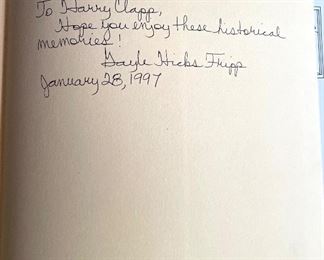 To Harry Clapp,
Hope you enjoy these historical
memories!
Gayle Hicks Fripp
January 28, 1997